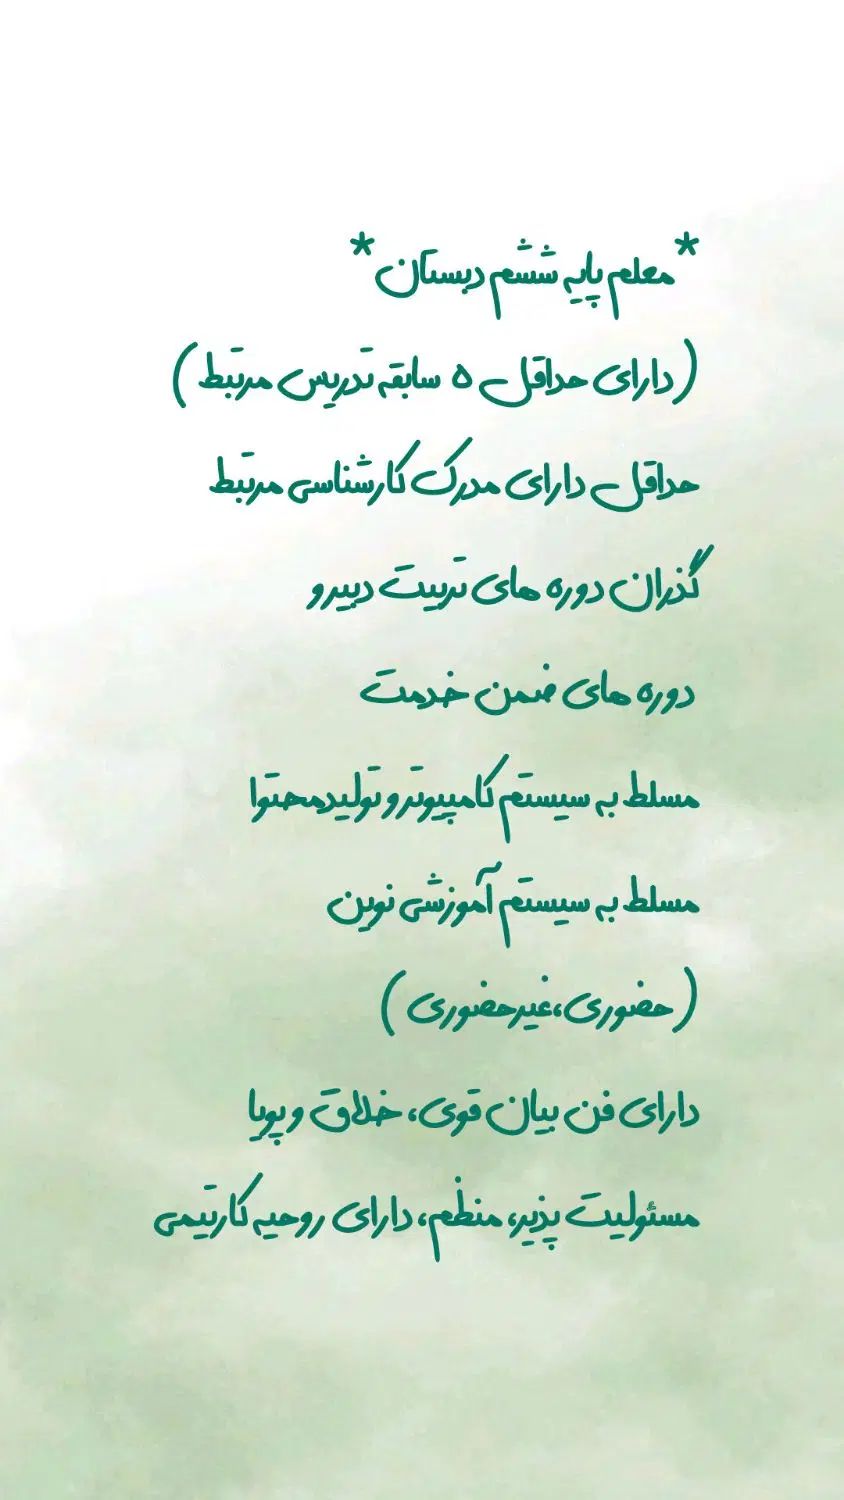 *معلم پایه ششم دبستان*
(دارای حداقل ۵ سابقه تدریس مرتبط)
حداقل دارای مدرک کارشناسی مرتبط
گذران دوره های تربیت دبیر و
دوره های ضمن خدمت
مسلط به سیستم کامپیوتر و تولیدمحتوا
مسلط به سیستم آموزشی نوین
(حضوری،غیرحضوری)
دارای فن بیان قوی، خلاق و پویا
مسئولیت پذیر، منظم، دارای روحیه کارتیمی